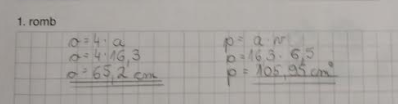 1. romb
o = 4 · a
o = 4 · 16,3
o = 65,2 cm
p = a · v
p = 16,3 · 6,5
p = 105,95 cm²